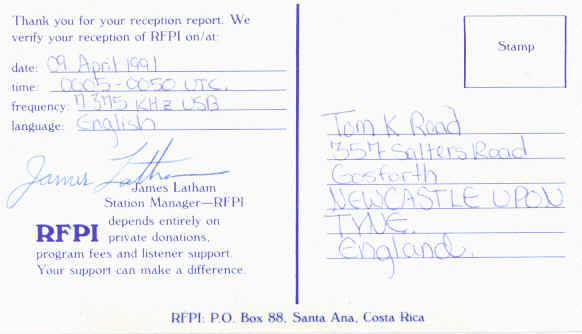 Thank you for your reception report. We
verify your reception of RFPI on/at:
date: 09 April 1991
time: 0005-0050 UTC.
frequency: 7375 KHz USB
language: English
James Latham
James Latham
Station Manager—RFPI
RFPI depends entirely on
private donations,
program fees and listener support.
Your support can make a difference.
Stamp
Tom K Road
357 Salters Road
Gosforth
NEWCASTLE UPON
TYNE.
England.
RFPI: P.O. Box 88, Santa Ana, Costa Rica